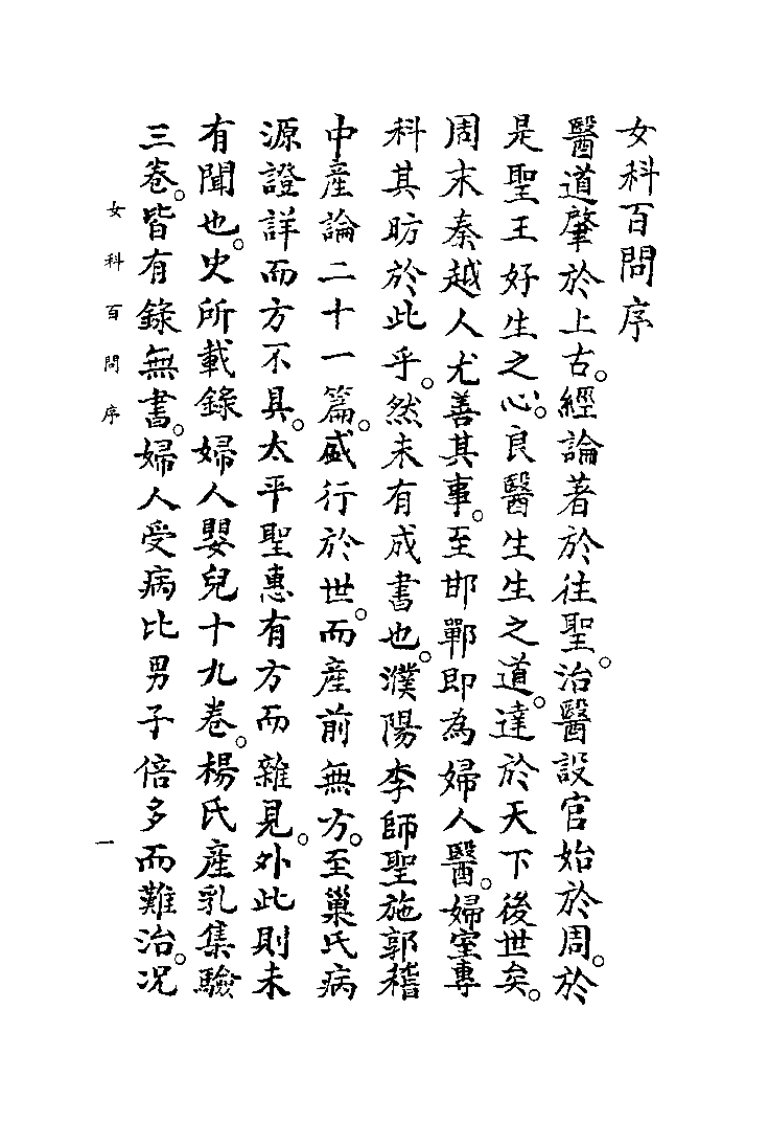 女科百問序
醫道肇於上古。經論著於往聖。治醫設官始於周。於
是聖王好生之心。良醫生生之道。達於天下後世矣。
周末秦越人尤善其事。至邯鄲即為婦人醫。婦室專
科其昉於此乎。然未有成書也。濮陽李師聖施郭稽
中產論二十一篇。盛行於世。而產前無方。至巢氏病
源證詳而方不具。太平聖惠有方而雜見。外此則未
有聞也。史所載錄婦人嬰兒十九卷。楊氏產乳集驗
三卷。皆有錄無書。婦人受病比男子倍多而難治。況
女科百問序
一